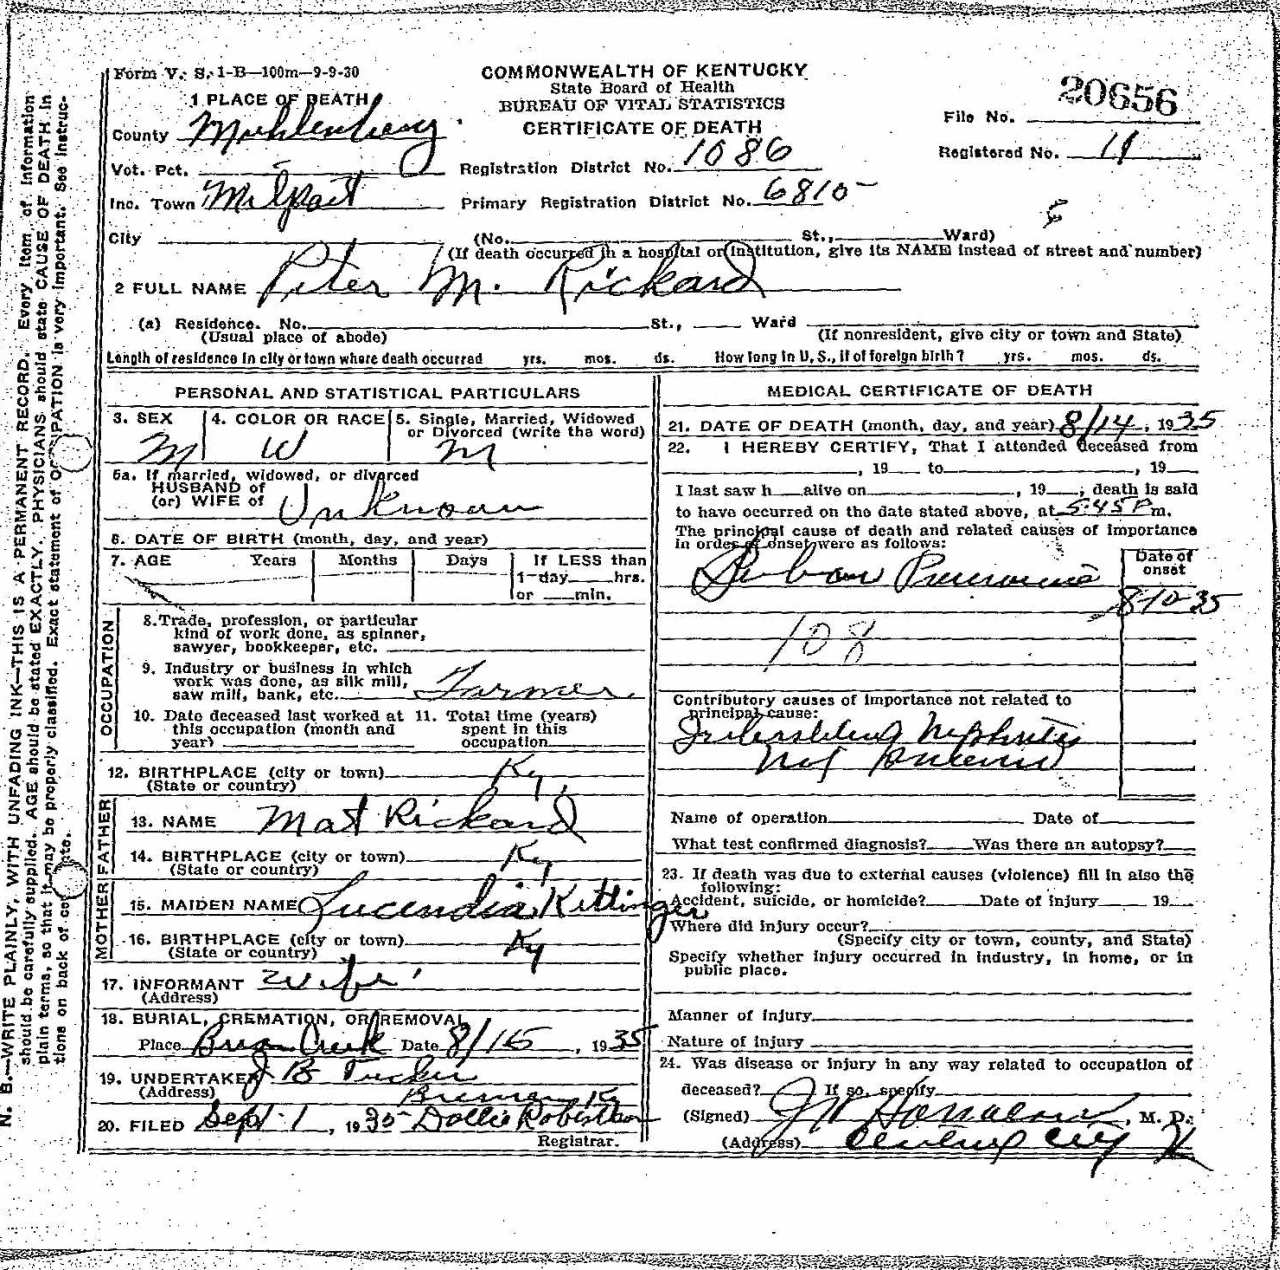 Form V. S. 1-B—100m—9-9-30
COMMONWEALTH OF KENTUCKY
State Board of Health
BUREAU OF VITAL STATISTICS
CERTIFICATE OF DEATH
File No. 20656
Registered No. 11
1 PLACE OF DEATH
County Muhlenberg
Vot. Pct.
Registration District No. 1086
Inc. Town
Primary Registration District No. 6810
City (No. St., Ward)
(If death occurred in a hospital or institution, give its NAME instead of street and number)
2 FULL NAME Peter M. Rickard
(a) Residence. No. St., Ward
(Usual place of abode) (If nonresident, give city or town and State)
Length of residence in city or town where death occurred yrs. mos. ds. How long in U, S., if of foreign birth? yrs. mos. ds.
PERSONAL AND STATISTICAL PARTICULARS
3. SEX 4. COLOR OR RACE 5. Single, Married, Widowed
or Divorced (write the word)
M W M
5a. If married, widowed, or divorced
HUSBAND of
(or) WIFE of Unknown
6. DATE OF BIRTH (month, day, and year)
7. AGE Years Months Days If LESS than
1 day hrs.
or min.
OCCUPATION
8. Trade, profession, or particular
kind of work done, as spinner,
sawyer, bookkeeper, etc.
9. Industry or business in which
work was done, as silk mill,
saw mill, bank, etc. Farmer
10. Date deceased last worked at
this occupation (month and
year)
11. Total time (years)
spent in this
occupation
12. BIRTHPLACE (city or town) Ky,
(State or country)
FATHER
13. NAME Mat Rickard
14. BIRTHPLACE (city or town) Ky
(State or country)
MOTHER
15. MAIDEN NAME Lucendia Kittinger
16. BIRTHPLACE (city or town) Ky
(State or country)
17. INFORMANT Wife
(Address)
18. BURIAL, CREMATION, OR REMOVAL
Place Creek Date 8/15, 1935
19. UNDERTAKER J B Tucker
(Address) Bremen Ky
20. FILED Sept-1, 1935 Dollie Robertson
Registrar.
MEDICAL CERTIFICATE OF DEATH
21. DATE OF DEATH (month, day, and year) 8/14, 1935
22. I HEREBY CERTIFY, That I attended deceased from
, 19 to , 19
I last saw h alive on , 19 ; death is said
to have occurred on the date stated above, at 5:45 P m.
The principal cause of death and related causes of importance
in order of onset were as follows:
Date of
onset
Pneumonia
8-10-35
108
Contributory causes of importance not related to
principal cause:
Nephritis
Name of operation Date of
What test confirmed diagnosis? Was there an autopsy?
23. If death was due to external causes (violence) fill in also the
following:
Accident, suicide, or homicide? Date of injury 19
Where did injury occur?
(Specify city or town, county, and State)
Specify whether injury occurred in industry, in home, or in
public place.
Manner of injury
Nature of injury
24. Was disease or injury in any way related to occupation of
deceased? If so, specify
(Signed) , M. D.
(Address) Central City Ky
N. B.—WRITE PLAINLY, WITH UNFADING INK—THIS IS A PERMANENT RECORD. Every item of information
should be carefully supplied. AGE should be stated EXACTLY. PHYSICIANS should state CAUSE OF DEATH in
plain terms, so that it may be properly classified. Exact statement of OCCUPATION is very important. See instruc-
tions on back of certificate.